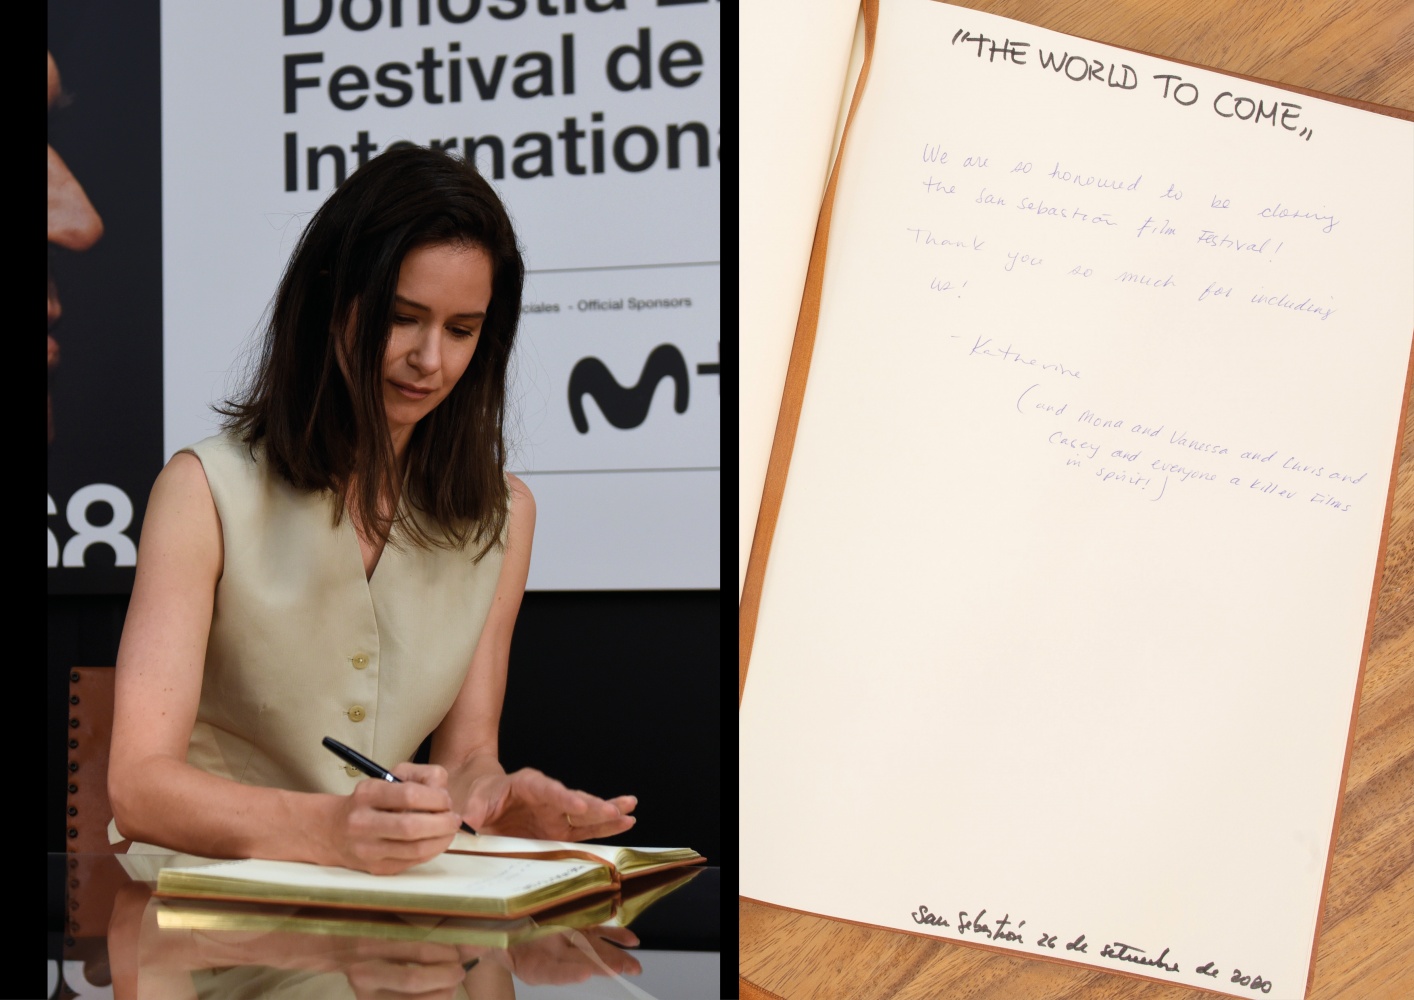 Donostia
Festival de
Internationa
ciales - Official Sponsors
M+
68
"THE WORLD TO COME"
We are so honoured to be closing
the San Sebastián Film Festival!
Thank you so much for including
us!
- Katherine
(and Mona and Vanessa and Chris and
Casey and everyone a Killer Films
in spirit!)
San Sebastián 26 de setiembre de 2020